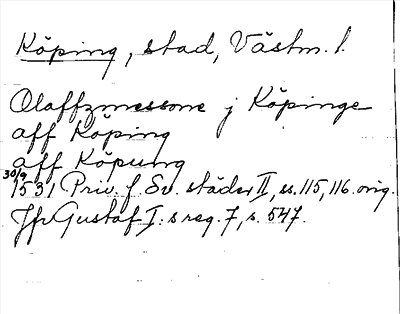 Köping, stad, Västm. l.
Olaffzmessone j Köpinge
aff Köping
aff Köpung
30/9
1531 Priv. f. Sv. städer II, ss. 115, 116. orig.
Jfr Gustaf I:s reg. 7, s. 547.